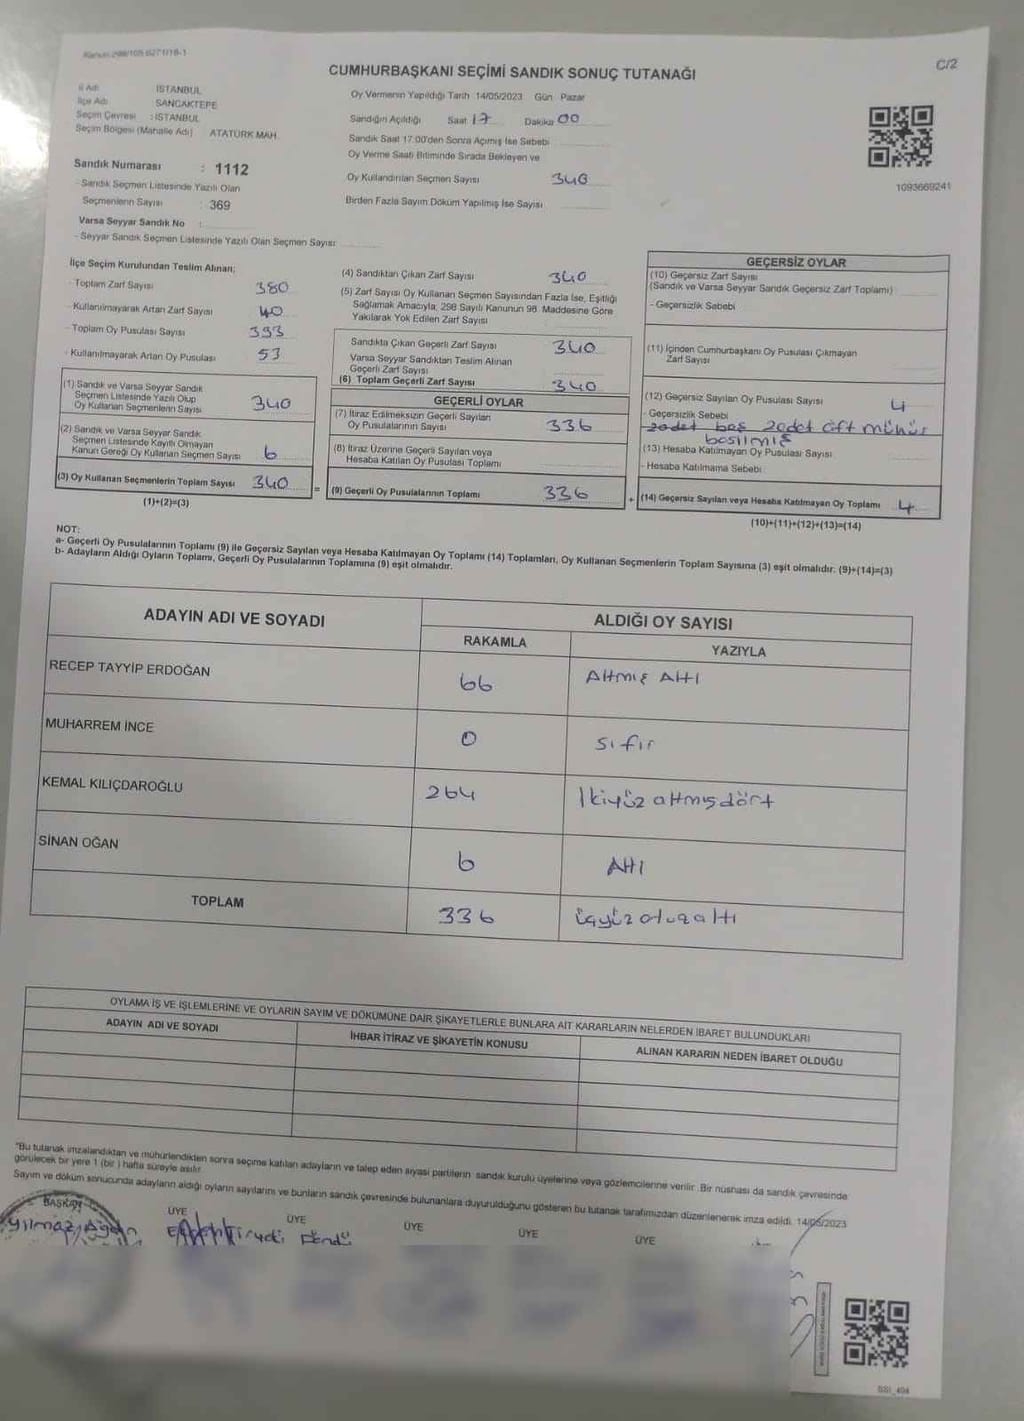 Kanun 298/105 G271/18-1
C/2
CUMHURBAŞKANI SEÇİMİ SANDIK SONUÇ TUTANAĞI
İl Adı İSTANBUL
İlçe Adı SANCAKTEPE
Seçim Çevresi : İSTANBUL
Seçim Bölgesi (Mahalle Adı) ATATÜRK MAH.
Sandık Numarası : 1112
- Sandık Seçmen Listesinde Yazılı Olan
Seçmenlerin Sayısı : 369
Varsa Seyyar Sandık No :
- Seyyar Sandık Seçmen Listesinde Yazılı Olan Seçmen Sayısı:
Oy Vermenin Yapıldığı Tarih 14/05/2023 Gün Pazar
Sandığın Açıldığı Saat 17 Dakika 00
Sandık Saat 17:00'den Sonra Açılmış İse Sebebi
Oy Verme Saati Bitiminde Sırada Bekleyen ve
Oy Kullandırılan Seçmen Sayısı 340
Birden Fazla Sayım Döküm Yapılmış İse Sayısı
1093669241
İlçe Seçim Kurulundan Teslim Alınan;
- Toplam Zarf Sayısı 380
- Kullanılmayarak Artan Zarf Sayısı 40
- Toplam Oy Pusulası Sayısı 393
- Kullanılmayarak Artan Oy Pusulası 53
(1) Sandık ve Varsa Seyyar Sandık
Seçmen Listesinde Yazılı Olup
Oy Kullanan Seçmenlerin Sayısı 340
(2) Sandık ve Varsa Seyyar Sandık
Seçmen Listesinde Kayıtlı Olmayan
Kanun Gereği Oy Kullanan Seçmen Sayısı 6
(3) Oy Kullanan Seçmenlerin Toplam Sayısı 340
(1)+(2)=(3)
(4) Sandıktan Çıkan Zarf Sayısı 340
(5) Zarf Sayısı Oy Kullanan Seçmen Sayısından Fazla İse, Eşitliği
Sağlamak Amacıyla, 298 Sayılı Kanunun 98. Maddesine Göre
Yakılarak Yok Edilen Zarf Sayısı
Sandıkta Çıkan Geçerli Zarf Sayısı 340
Varsa Seyyar Sandıktan Teslim Alınan
Geçerli Zarf Sayısı
(6) Toplam Geçerli Zarf Sayısı 340
GEÇERLİ OYLAR
(7) İtiraz Edilmeksizin Geçerli Sayılan
Oy Pusulalarının Sayısı 336
(8) İtiraz Üzerine Geçerli Sayılan veya
Hesaba Katılan Oy Pusulası Toplamı
= (9) Geçerli Oy Pusulalarının Toplamı 336
GEÇERSİZ OYLAR
(10) Geçersiz Zarf Sayısı
(Sandık ve Varsa Seyyar Sandık Geçersiz Zarf Toplamı)
- Geçersizlik Sebebi
(11) İçinden Cumhurbaşkanı Oy Pusulası Çıkmayan
Zarf Sayısı
(12) Geçersiz Sayılan Oy Pusulası Sayısı 4
- Geçersizlik Sebebi
2 adet boş 2 adet çift mühür
basılmış
(13) Hesaba Katılmayan Oy Pusulası Sayısı
- Hesaba Katılmama Sebebi
+ (14) Geçersiz Sayılan veya Hesaba Katılmayan Oy Toplamı 4
(10)+(11)+(12)+(13)=(14)
NOT:
a- Geçerli Oy Pusulalarının Toplamı (9) ile Geçersiz Sayılan veya Hesaba Katılmayan Oy Toplamı (14) Toplamları, Oy Kullanan Seçmenlerin Toplam Sayısına (3) eşit olmalıdır. (9)+(14)=(3)
b- Adayların Aldığı Oyların Toplamı, Geçerli Oy Pusulalarının Toplamına (9) eşit olmalıdır.
ADAYIN ADI VE SOYADI ALDIĞI OY SAYISI
RAKAMLA YAZIYLA
RECEP TAYYİP ERDOĞAN 66 Altmış Altı
MUHARREM İNCE 0 Sıfır
KEMAL KILIÇDAROĞLU 264 İkiyüz altmışdört
SİNAN OĞAN 6 Altı
TOPLAM 336 üçyüz otuz altı
OYLAMA İŞ VE İŞLEMLERİNE VE OYLARIN SAYIM VE DÖKÜMÜNE DAİR ŞİKAYETLERLE BUNLARA AİT KARARLARIN NELERDEN İBARET BULUNDUKLARI
ADAYIN ADI VE SOYADI İHBAR İTİRAZ VE ŞİKAYETİN KONUSU ALINAN KARARIN NEDEN İBARET OLDUĞU
"Bu tutanak imzalandıktan ve mühürlendikten sonra seçime katılan adayların ve talep eden siyasi partilerin sandık kurulu üyelerine veya gözlemcilerine verilir. Bir nüshası da sandık çevresinde
görülecek bir yere 1 (bir) hafta süreyle asılır.
Sayım ve döküm sonucunda adayların aldığı oyların sayılarını ve bunların sandık çevresinde bulunanlara duyurulduğunu gösteren bu tutanak tarafımızdan düzenlenerek imza edildi. 14/05/2023
BAŞKAN ÜYE ÜYE ÜYE ÜYE ÜYE
Yılmaz
SSI_404